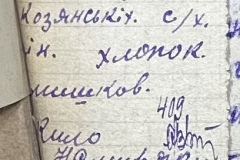 Козянськіх. с/х.
ін. хлопок.
мишков.
409
Кило